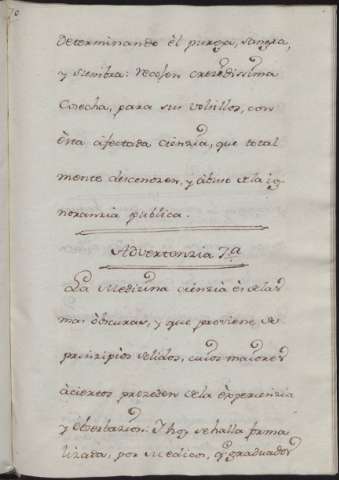 determinando èl purga, sangra,
y siembra: Recojen crezidissima
Cosecha, para sus volsillos, con
èsta àfectada cienzia, que total
mente desconozen, y àbuso de la ig-
noranzia publica.
Advertenzia 7.a
La Medizina cienzia ès de las
mas òbscuras, y que proviene de
prinzipios solidos, cuios maiores
àciertos prozeden de la èxperienzia
y òbserbazion: I hoy se halla forma
lizada, por Medicos, q.e graduados